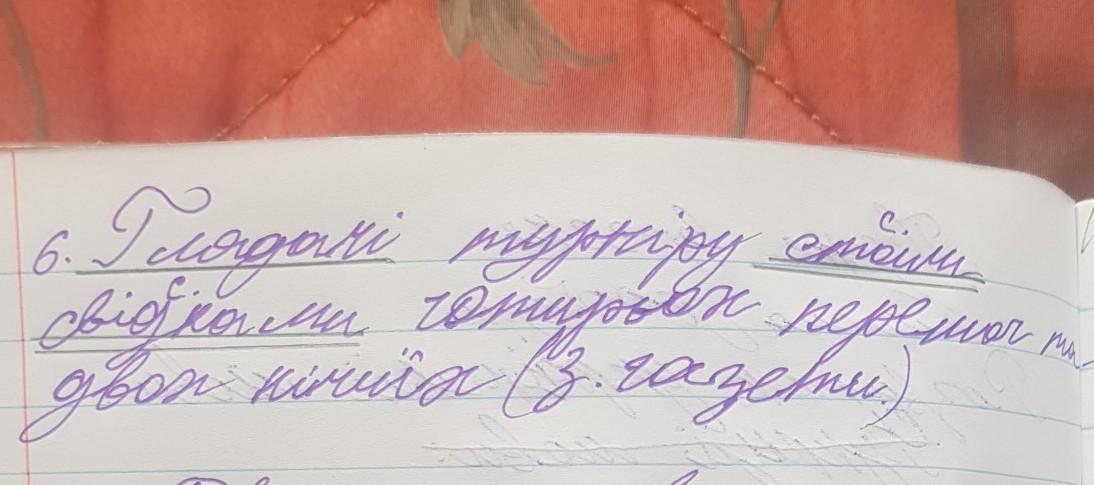 6. Глядачі турніру стали
свідками чотирьох перемог та
двох нічиїх (З газети.)